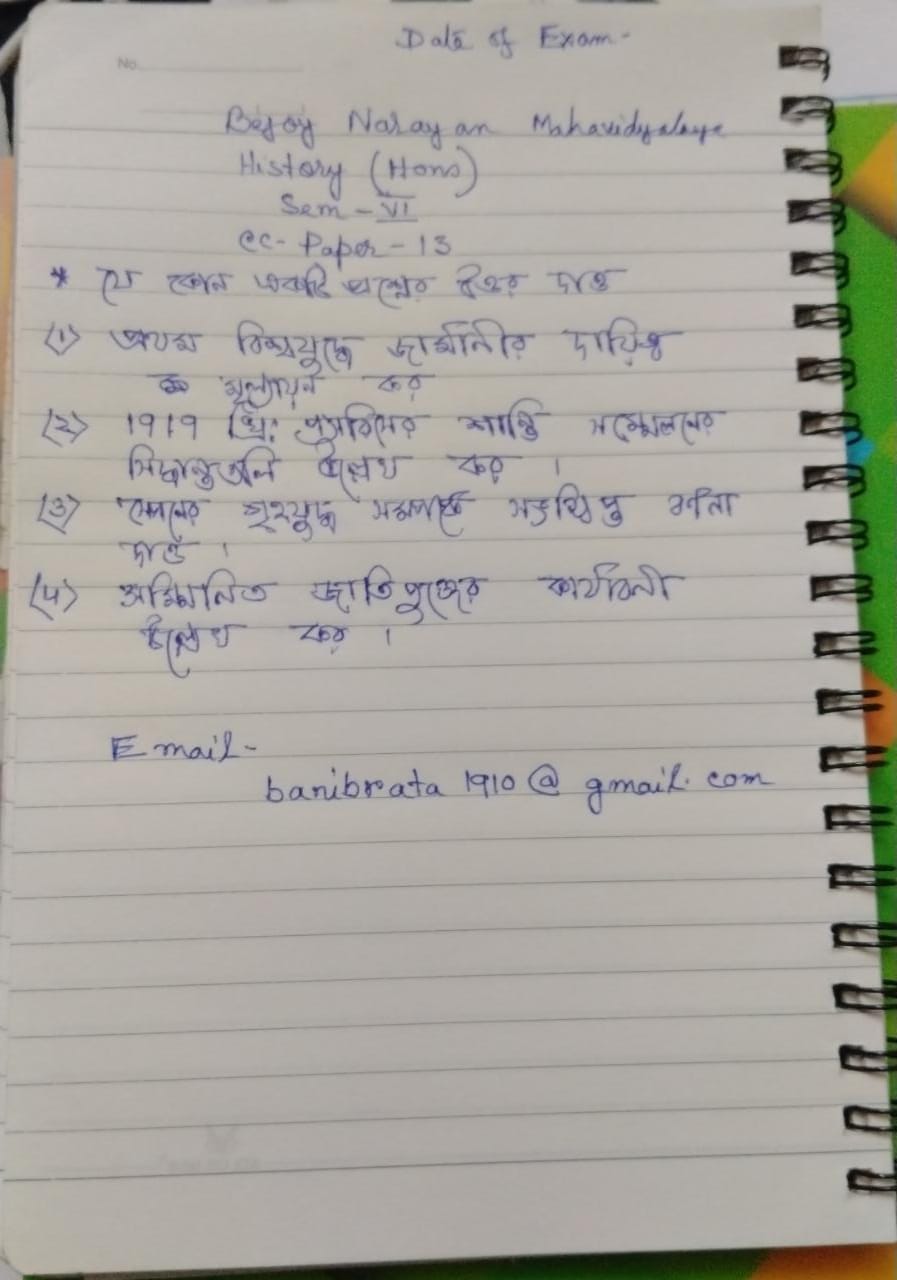 Date of Exam-
No.
Bejoy Narayan Mahavidyalaya
History (Hons)
Sem - VI
CC- Paper - 13
* যে কোন একটি প্রশ্নের উত্তর দাও
(১) প্রথম বিশ্বযুদ্ধে জার্মানীর দায়িত্ব
মূল্যায়ন কর
(২) 1919 খ্রিঃ প্যারিসের শান্তি সম্মেলনের
সিদ্ধান্তগুলি উল্লেখ কর ।
(৩) স্পেনের গৃহযুদ্ধ সম্পর্কে সংক্ষিপ্ত বর্ণনা
দাও ।
(৪) সম্মিলিত জাতিপুঞ্জের কার্যাবলী
উল্লেখ কর ।
Email-
banibrata1910@gmail.com